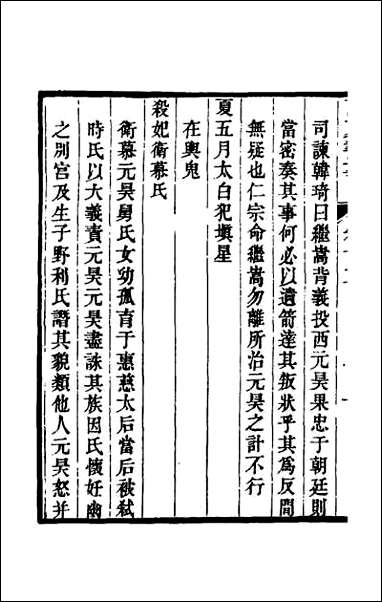 司諫韓琦曰繼嵩背義投西元昊果忠于朝廷則
當密奏其事何必以遺箭達其叛狀乎其爲反間
無疑也仁宗命繼嵩勿離所治元昊之計不行
夏五月太白犯塡星
在輿鬼
殺妃衞慕氏
衞慕元昊舅氏女幼孤育于惠慈太后當后被弑
時氏以大義責元昊元昊盡誅其族因氏懷妊幽
之別宮及生子野利氏譖其貌類他人元昊怒并